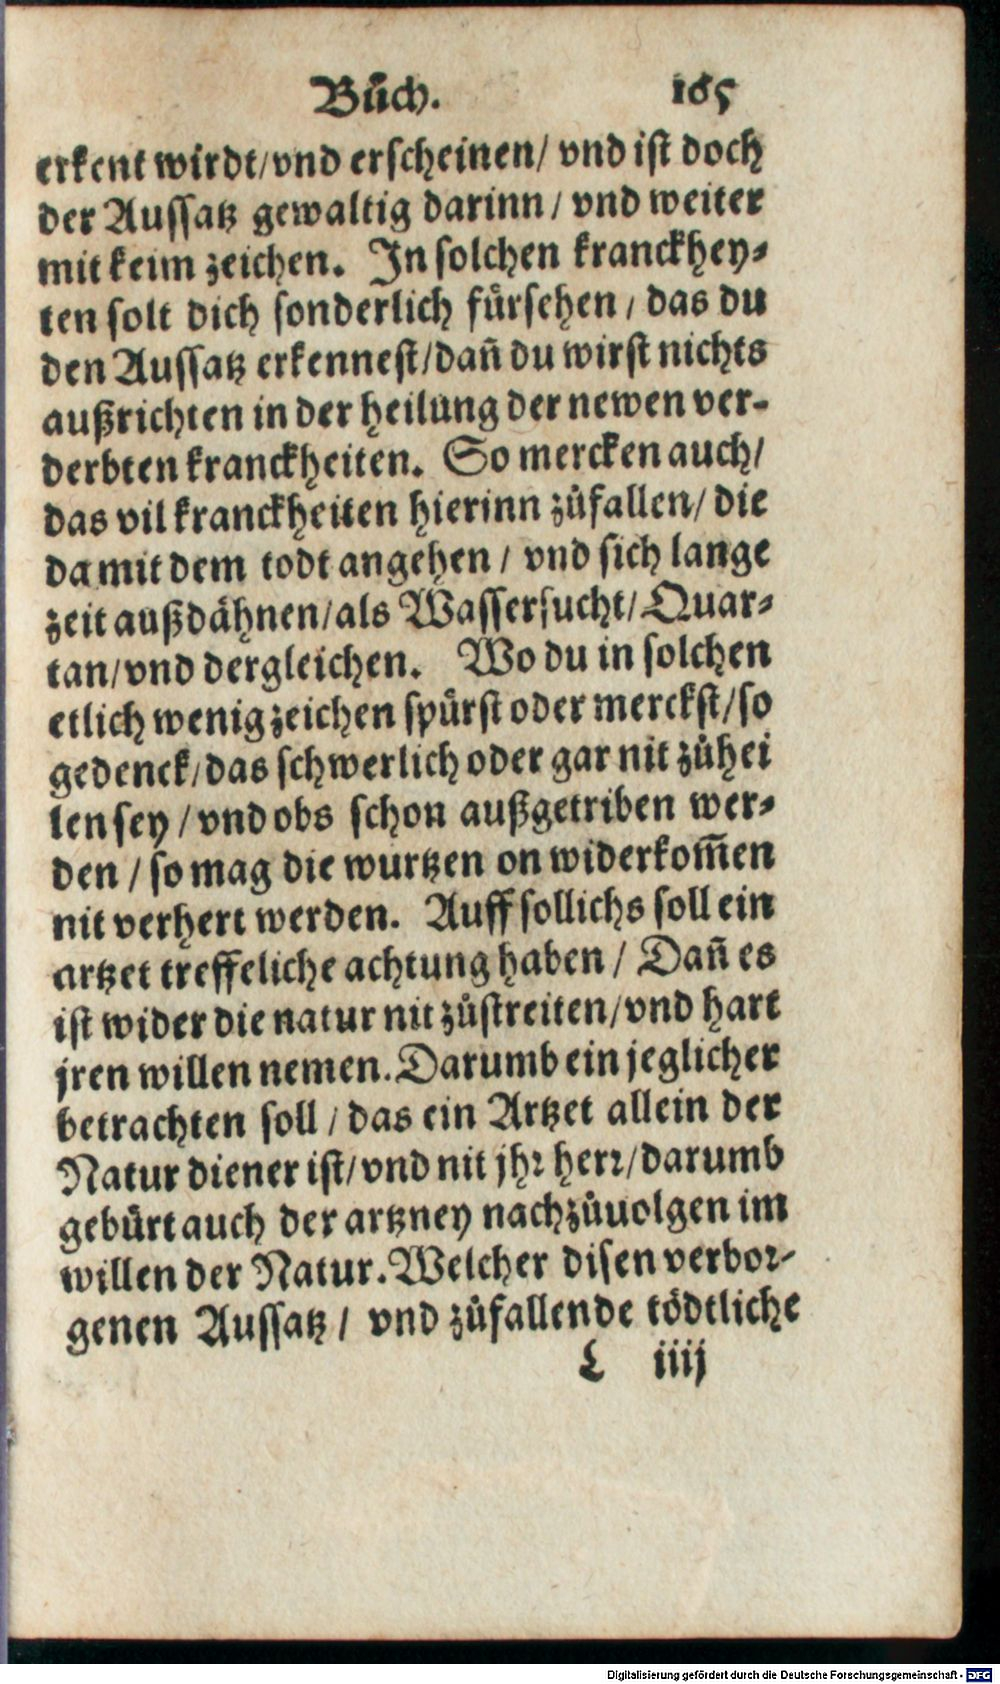 Bůch. 165
erkent wirdt/vnd erscheinen/ vnd ist doch
der Aussatz gewaltig darinn/ vnd weiter
mit keim zeichen. In solchen kranckhey-
ten solt dich sonderlich fürsehen/ das du
den Aussatz erkennest/dañ du wirst nichts
außrichten in der heilung der newen ver-
derbten kranckheiten. So mercken auch/
das vil kranckheiten hierinn zůfallen/ die
da mit dem todt angehen/ vnd sich lange
zeit außdähnen/als Wassersucht/Quar-
tan/vnd dergleichen. Wo du in solchen
etlich wenig zeichen spürst oder merckst/so
gedenck/das schwerlich oder gar nit zůhei
len sey/vnd obs schon außgetriben wer-
den/so mag die wurtzen on widerkom̃en
nit verhert werden. Auff sollichs soll ein
artzet treffeliche achtung haben/ Dañ es
ist wider die natur nit zůstreiten/vnd hart
jren willen nemen. Darumb ein jeglicher
betrachten soll/das ein Artzet allein der
Natur diener ist/vnd nit jhr herr/darumb
gebürt auch der artzney nachzůuolgen im
willen der Natur. Welcher disen verbor-
genen Aussatz/ vnd zůfallende tödtliche
L iiij
Digitalisierung gefördert durch die Deutsche Forschungsgemeinschaft - DFG